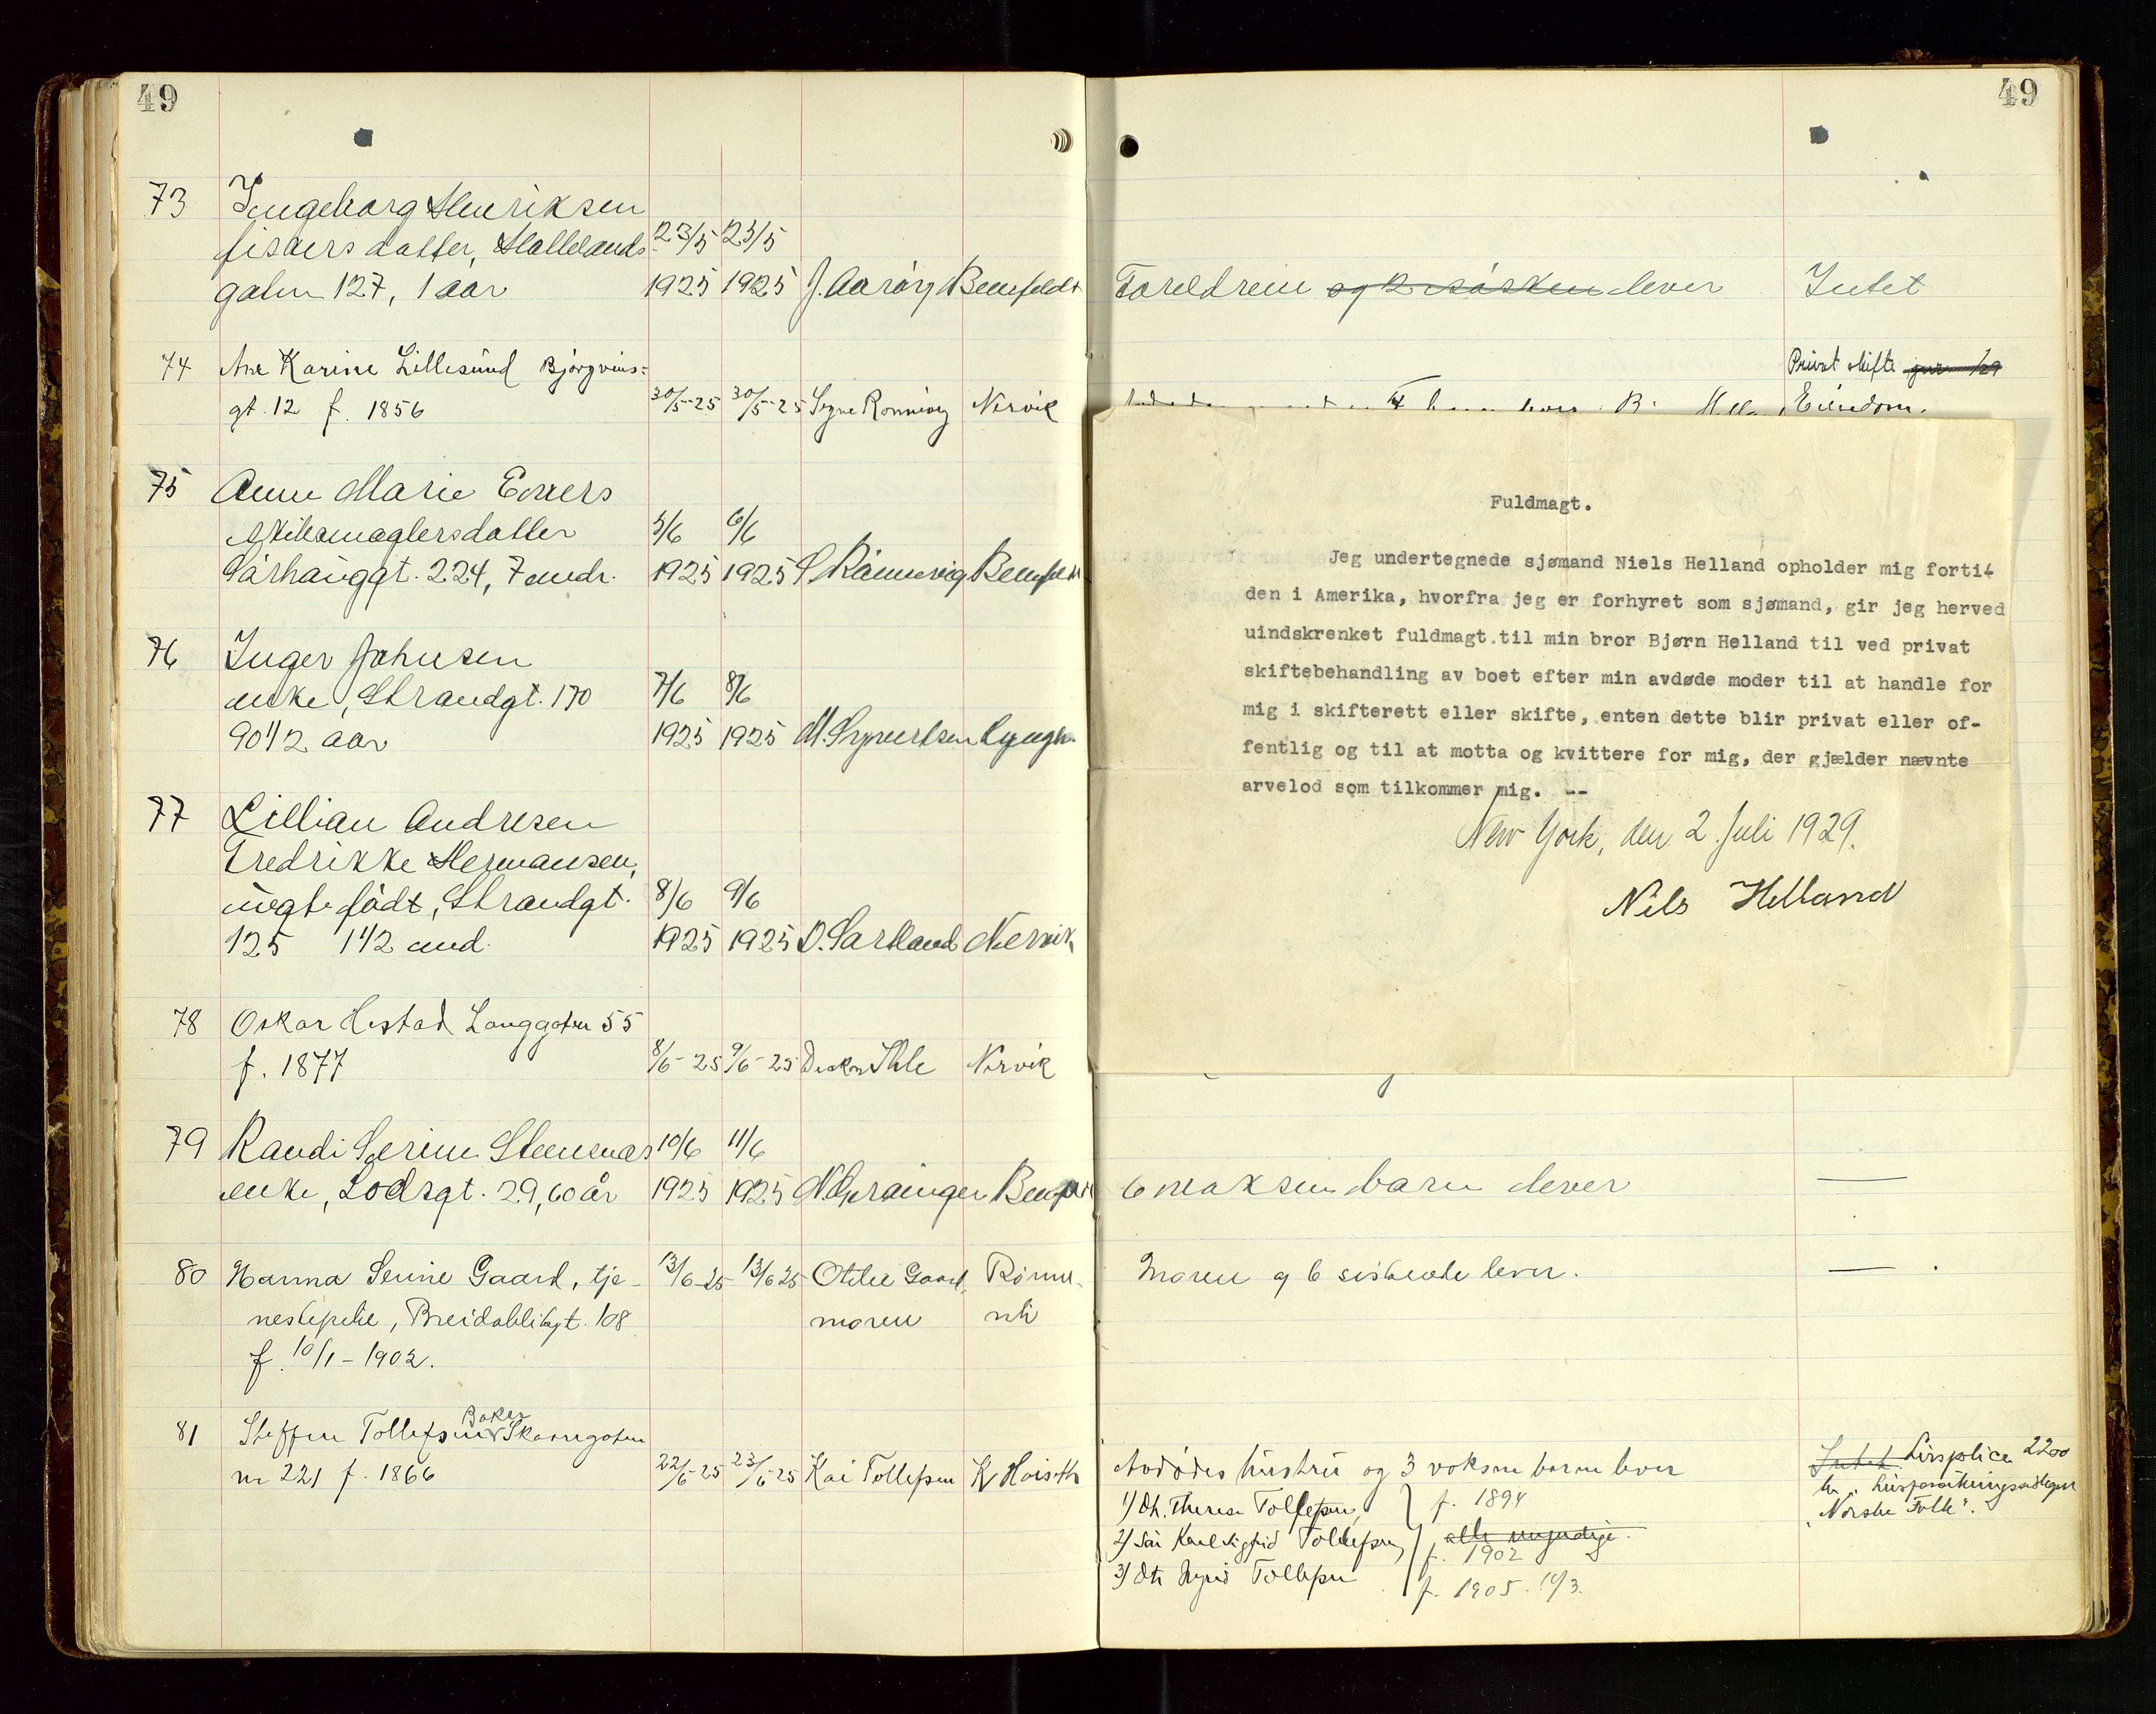 49
73 Ingeborg Henriksen
fiskers datter, Hallelands 23/5 23/5
gaten 127, 1 aar 1925 1925 J. Aarøy Bernfeldt
74 Ane Karine Lillesund Bjørgvins-
gt. 12 f. 1856 30/5-25 30/5-25 Signe Rønnevig Nervik
75 Anne Marie Evers
skibsmaglersdatter 5/6 6/6
Sørhauggt. 224, 7 mndr. 1925 1925 S. Rønnevig
76 Inger Johnsen
enke, Strandgt. 170 7/6 8/6
90 1/2 aar 1925 1925 M. Lyngh.
77 Lillian Andresen
Fredrikke Hermansen,
uegte født, Strandgt. 8/6 9/6
125 1 1/2 mnd. 1925 1925 O. Nervik
78 Oskar Hestad Langgaten 55
f. 1877 8/6-25 9/6-25 Ihle Nervik
79 Randi Serine Steensnæs 10/6 11/6
enke, Lodsgt. 29, 60 år 1925 1925 N. Grainger
80 Hanna Serine Gaard, tje- 13/6-25 13/6 25 Otilie Gaard, Rønne-
nestepike, Breidablikgt. 108 moren vik
f. 10/1-1902.
Baker
81 Steffen Tollefsen Skaaregaten
nr 221 f. 1866 22/6-25 23/6-25 Kai Tollefsen K
49
Forældrene og 2 søsken lever Intet
Privat skifte
Eiendom.
Fuldmagt.
Jeg undertegnede sjømand Niels Helland opholder mig forti-
den i Amerika, hvorfra jeg er forhyret som sjømand, gir jeg herved
uindskrenket fuldmagt.til min bror Bjørn Helland til ved privat
skiftebehandling av boet efter min avdøde moder til at handle for
mig i skifterett eller skifte, enten dette blir privat eller of-
fentlig og til at motta og kvittere for mig, der gjælder nævnte
arvelod som tilkommer mig. --
New York, den 2. Juli 1929.
Nils Helland
6 voksne barn lever —
Moren og 6 søskende lever. — .
Avdødes hustru og 3 voksne barn lever Intet Livspolice 2200
1) Dtr. Therese Tollefsen, f. 1894 kr. i livsforsikringsselskapet
2) Søn Karl Sigfrid Tollefsen, alle myndige. "Norske Folk".
f. 1902
3) Dtr Tollefsen f. 1905. 14/3.